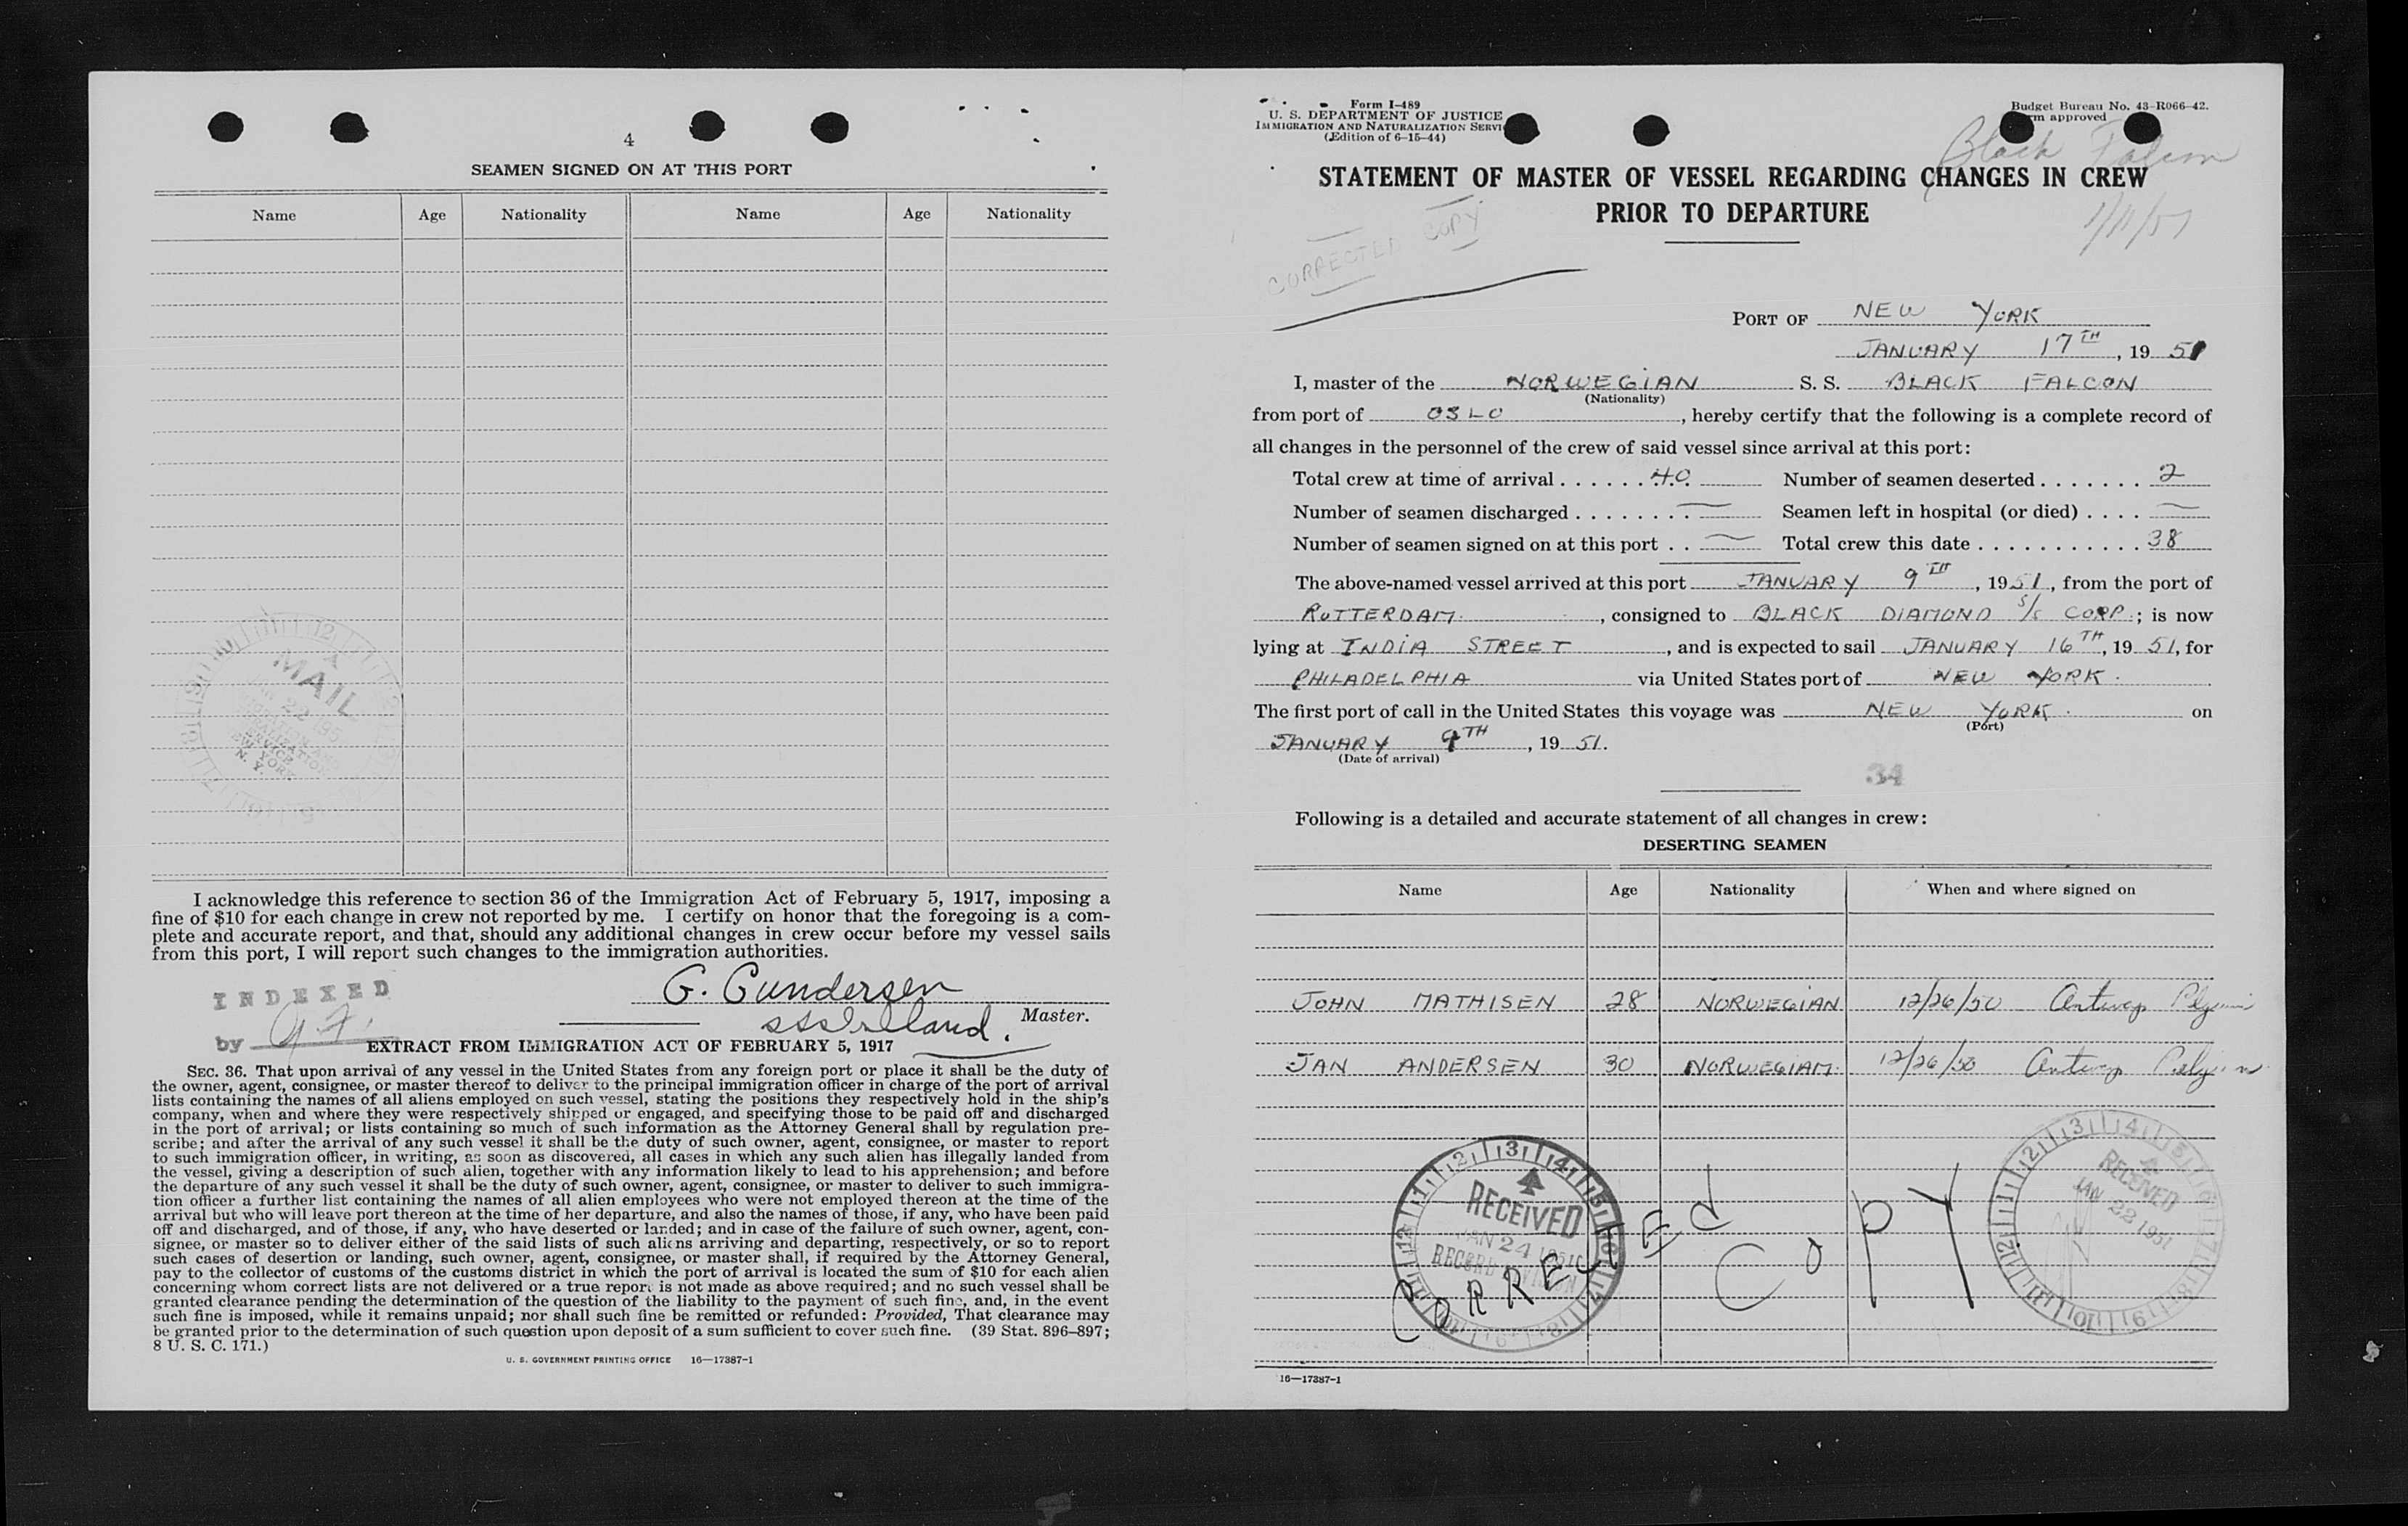 4
SEAMEN SIGNED ON AT THIS PORT
Name Age Nationality Name Age Nationality
MAIL
22 195
SERVICE
NEW YORK
N. Y.
I acknowledge this reference to section 36 of the Immigration Act of February 5, 1917, imposing a
fine of $10 for each change in crew not reported by me. I certify on honor that the foregoing is a com-
plete and accurate report, and that, should any additional changes in crew occur before my vessel sails
from this port, I will report such changes to the immigration authorities.
INDEXED
by
G. Gundersen
Master.
EXTRACT FROM IMMIGRATION ACT OF FEBRUARY 5, 1917
SEC. 36. That upon arrival of any vessel in the United States from any foreign port or place it shall be the duty of
the owner, agent, consignee, or master thereof to deliver to the principal immigration officer in charge of the port of arrival
lists containing the names of all aliens employed on such vessel, stating the positions they respectively hold in the ship's
company, when and where they were respectively shipped or engaged, and specifying those to be paid off and discharged
in the port of arrival; or lists containing so much of such information as the Attorney General shall by regulation pre-
scribe; and after the arrival of any such vessel it shall be the duty of such owner, agent, consignee, or master to report
to such immigration officer, in writing, as soon as discovered, all cases in which any such alien has illegally landed from
the vessel, giving a description of such alien, together with any information likely to lead to his apprehension; and before
the departure of any such vessel it shall be the duty of such owner, agent, consignee, or master to deliver to such immigra-
tion officer a further list containing the names of all alien employees who were not employed thereon at the time of the
arrival but who will leave port thereon at the time of her departure, and also the names of those, if any, who have been paid
off and discharged, and of those, if any, who have deserted or landed; and in case of the failure of such owner, agent, con-
signee, or master so to deliver either of the said lists of such aliens arriving and departing, respectively, or so to report
such cases of desertion or landing, such owner, agent, consignee, or master shall, if required by the Attorney General,
pay to the collector of customs of the customs district in which the port of arrival is located the sum of $10 for each alien
concerning whom correct lists are not delivered or a true report is not made as above required; and no such vessel shall be
granted clearance pending the determination of the question of the liability to the payment of such fine, and, in the event
such fine is imposed, while it remains unpaid; nor shall such fine be remitted or refunded: Provided, That clearance may
be granted prior to the determination of such question upon deposit of a sum sufficient to cover such fine. (39 Stat. 896–897;
8 U. S. C. 171.)
U. S. GOVERNMENT PRINTING OFFICE 16—17387-1
Form I-489
U. S. DEPARTMENT OF JUSTICE
IMMIGRATION AND NATURALIZATION SERVI
(Edition of 6-15-44)
Budget Bureau No. 43-R066-42.
rm approved
Black Falcon
1/11/51
STATEMENT OF MASTER OF VESSEL REGARDING CHANGES IN CREW
PRIOR TO DEPARTURE
CORRECTED COPY
PORT OF NEW YORK
JANUARY 17TH, 1951
I, master of the NORWEGIAN S. S. BLACK FALCON
(Nationality)
from port of OSLO, hereby certify that the following is a complete record of
all changes in the personnel of the crew of said vessel since arrival at this port:
Total crew at time of arrival . . . . . . 40 Number of seamen deserted . . . . . . . 2
Number of seamen discharged . . . . . . . . — Seamen left in hospital (or died) . . . . —
Number of seamen signed on at this port . . — Total crew this date . . . . . . . . . . . 38
The above-named vessel arrived at this port JANUARY 9TH, 1951, from the port of
ROTTERDAM, consigned to BLACK DIAMOND S/S CORP.; is now
lying at INDIA STREET, and is expected to sail JANUARY 16TH, 1951, for
PHILADELPHIA via United States port of NEW YORK.
The first port of call in the United States this voyage was NEW YORK. on
(Port)
JANUARY 9TH, 1951.
(Date of arrival)
34
Following is a detailed and accurate statement of all changes in crew:
DESERTING SEAMEN
Name Age Nationality When and where signed on
JOHN MATHISEN 28 NORWEGIAN 12/26/50 Antwerp Belgium
JAN ANDERSEN 30 NORWEGIAN 12/26/50 Antwerp Belgium
RECEIVED
JAN 24 1951
RECORD DIVISION
CORRECTED COPY
RECEIVED
JAN 22 1951
16—17387-1